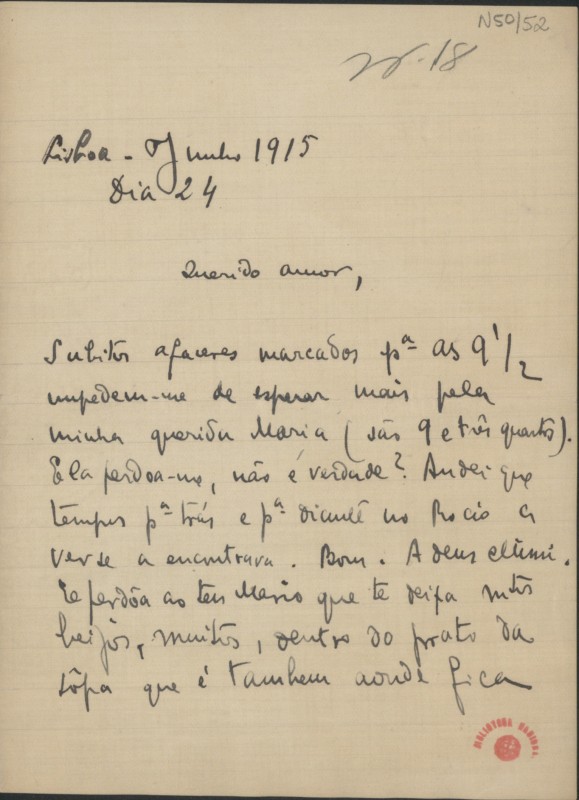 N50/52
18
Lisboa - Junho 1915
Dia 24
Querido amor,
Subitos afaceres marcados pª as 9 1/2
impedem-me de esperar mais pela
minha querida Maria (são 9 e três quartos).
Ela perdoa-me, não é verdade? Andei que
tempos pª trás e pª diante no Rocio a
ver se a encontrava. Bom. Adeus
E perdôa ao teu Mario que te deixa mtos
beijos, muitos, dentro do prato da
sôpa que é tambem aonde fica
BIBLIOTECA NACIONAL